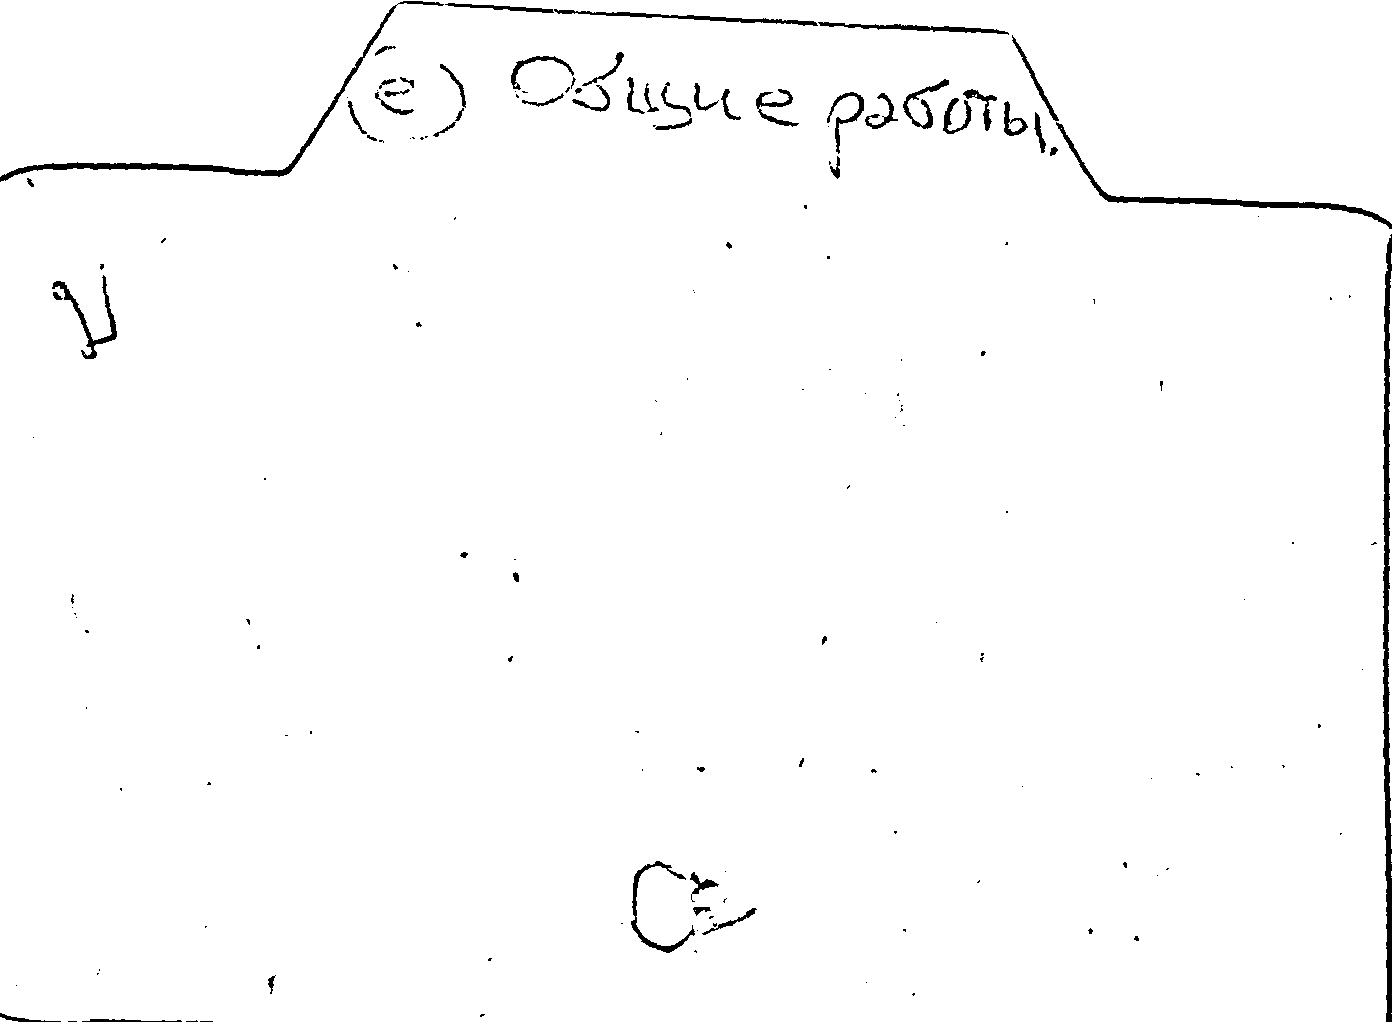 (е) Общие работы.